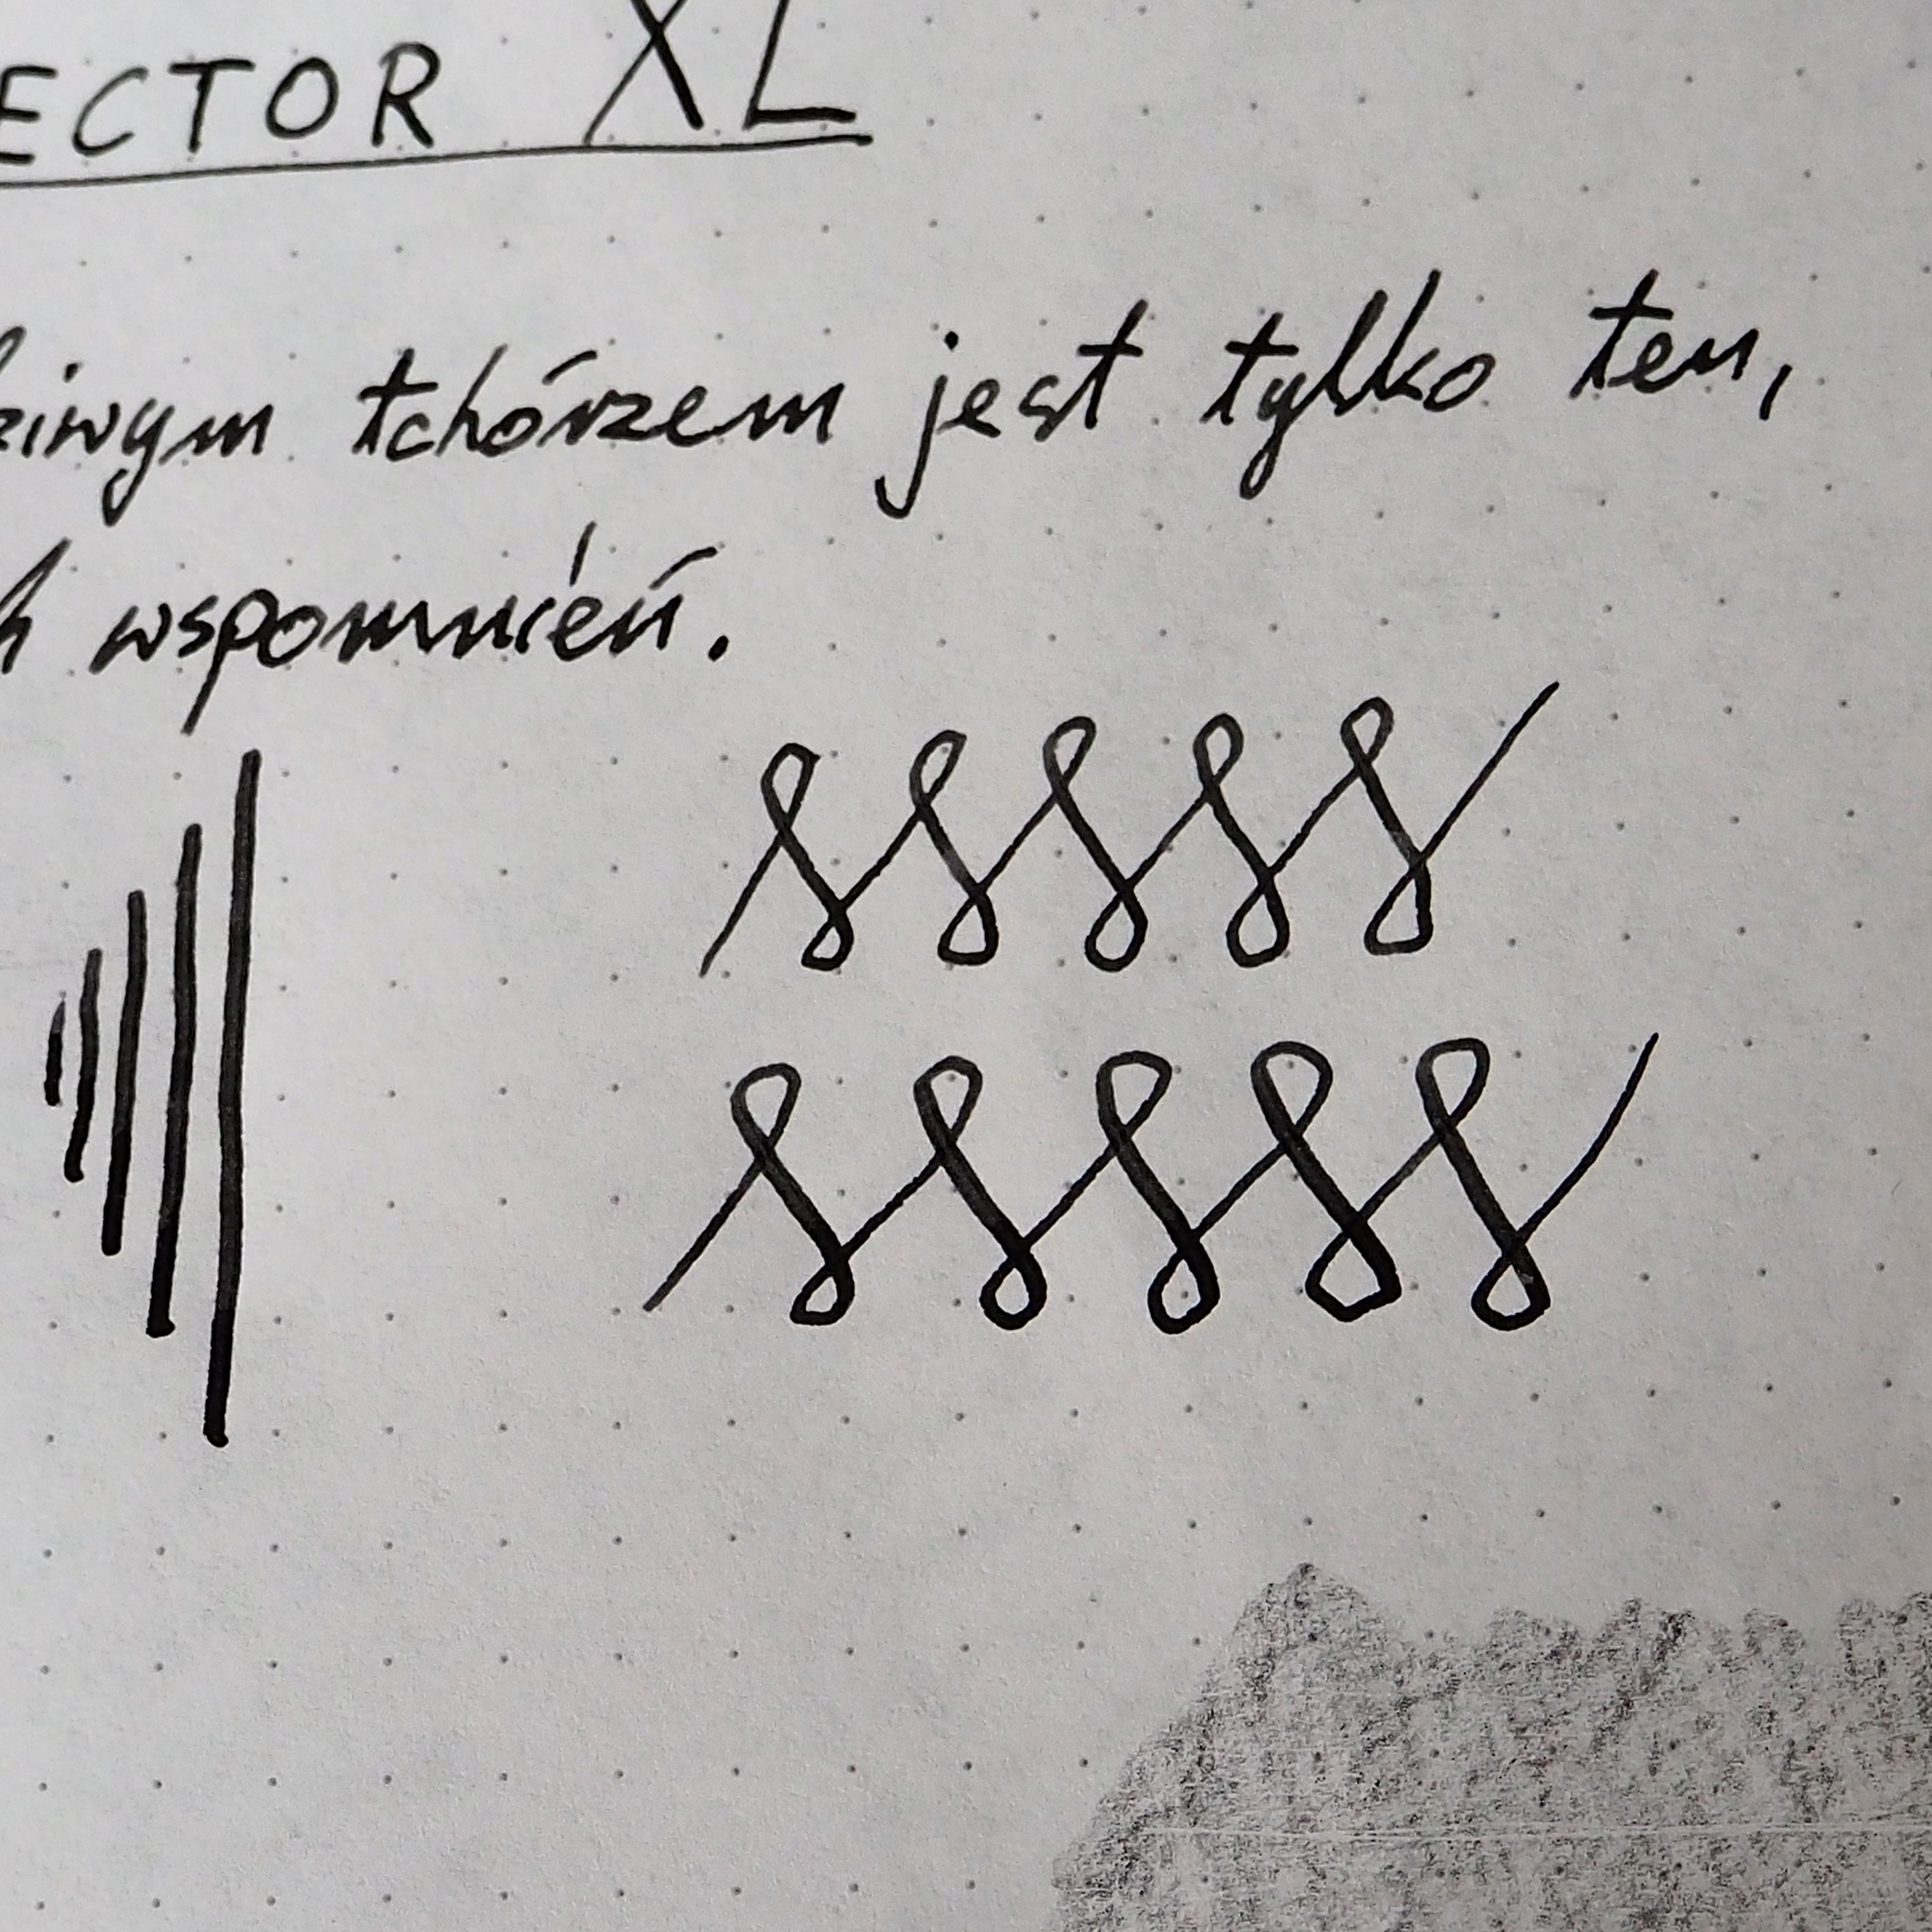 ECTOR XL
ziwym tchórzem jest tylko ten,
h wspomnień.